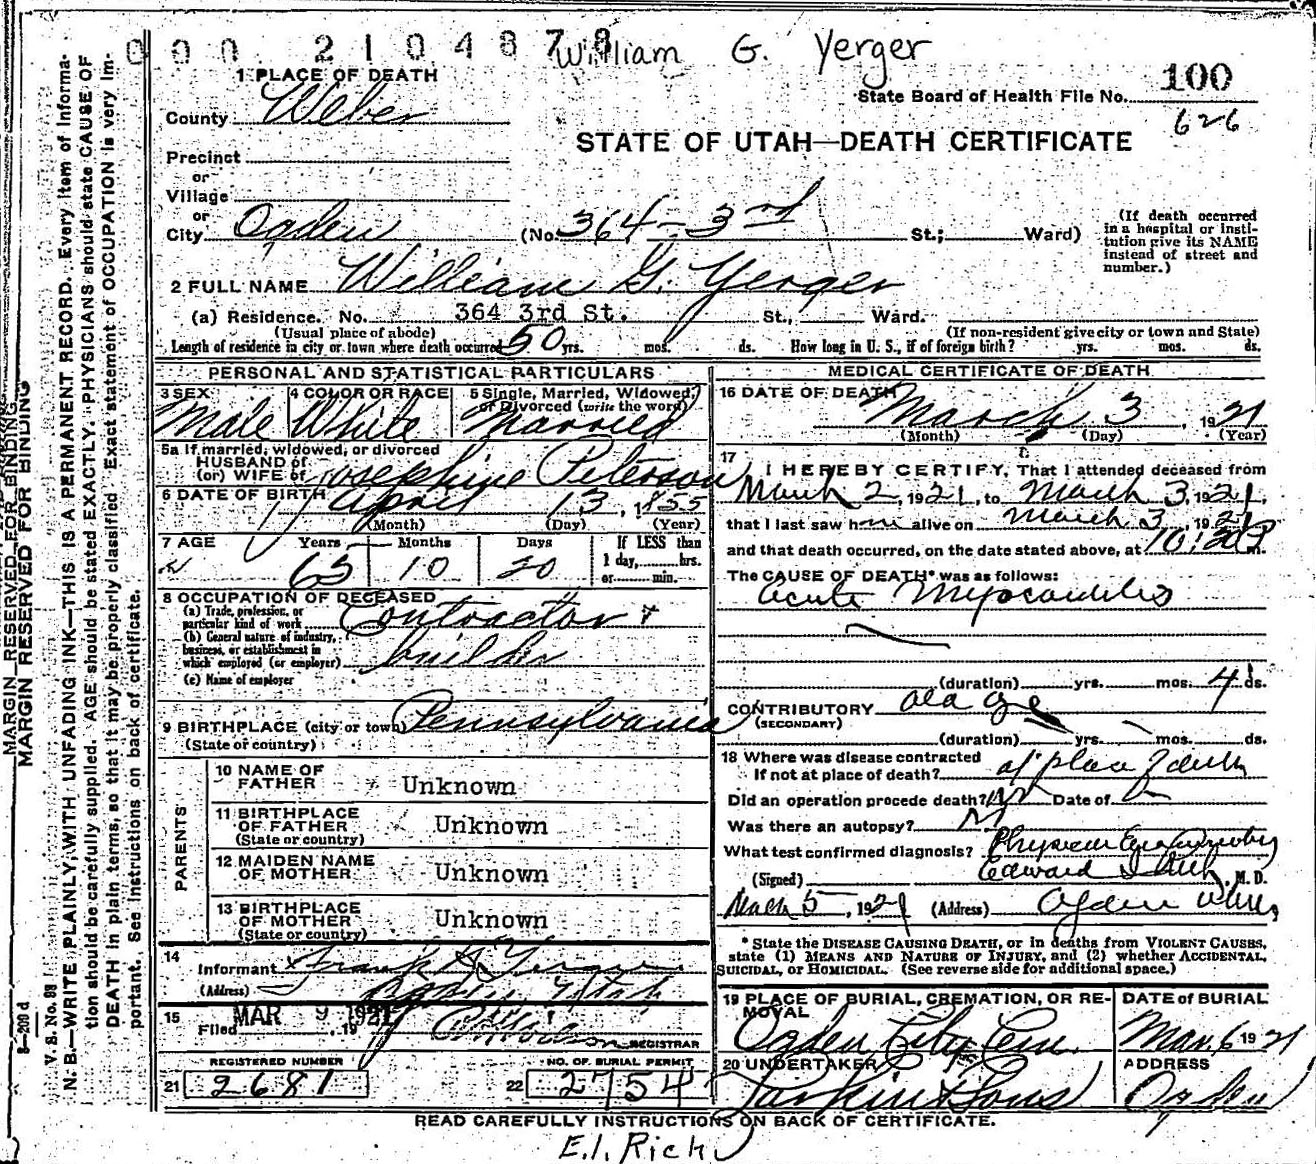 0002104878
William G. Yerger
1 PLACE OF DEATH
County Weber
State Board of Health File No. 100
626
STATE OF UTAH—DEATH CERTIFICATE
Precinct
or
Village
or
City Ogden (No. 364 - 3rd St.; Ward)
(If death occurred
in a hospital or insti-
tution give its NAME
instead of street and
number.)
2 FULL NAME William G. Yerger
(a) Residence. No. 364 3rd St. St., Ward.
(Usual place of abode) (If non-resident give city or town and State)
Length of residence in city or town where death occurred 50 yrs. mos. ds. How long in U. S., if of foreign birth? yrs. mos. ds.
PERSONAL AND STATISTICAL PARTICULARS
3 SEX 4 COLOR OR RACE 5 Single, Married, Widowed,
or Divorced (write the word)
Male White Married
5a If married, widowed, or divorced
HUSBAND of
(or) WIFE of Josephine Peterson
6 DATE OF BIRTH April 13, 1855
(Month) (Day) (Year)
7 AGE Years Months Days If LESS than
1 day, hrs.
or min.
65 10 20
8 OCCUPATION OF DECEASED
(a) Trade, profession, or
particular kind of work Contractor +
(b) General nature of industry,
business, or establishment in
which employed (or employer) builder
(c) Name of employer
9 BIRTHPLACE (city or town) Pennsylvania
(State or country)
PARENTS
10 NAME OF
FATHER Unknown
11 BIRTHPLACE
OF FATHER Unknown
(State or country)
12 MAIDEN NAME
OF MOTHER Unknown
13 BIRTHPLACE
OF MOTHER Unknown
(State or country)
14
Informant Frank G. Yerger
(Address) Ogden Utah
15
Filed MAR 9 1921, 19
REGISTRAR
REGISTERED NUMBER NO. OF BURIAL PERMIT
21 2681 22 2754
MEDICAL CERTIFICATE OF DEATH
16 DATE OF DEATH
March 3, 1921
(Month) (Day) (Year)
17
I HEREBY CERTIFY, That I attended deceased from
March 2, 1921, to March 3, 1921,
that I last saw him alive on March 3, 1921,
and that death occurred, on the date stated above, at 10:20P m.
The CAUSE OF DEATH* was as follows:
Acute Myocarditis
(duration) yrs. mos. 4 ds.
CONTRIBUTORY old age
(SECONDARY)
(duration) yrs. mos. ds.
18 Where was disease contracted
If not at place of death? at place of death
Did an operation precede death? No Date of
Was there an autopsy? No
What test confirmed diagnosis? Physical Examination
(Signed) Edward I Rich, M. D.
March 5, 1921 (Address) Ogden Utah
* State the DISEASE CAUSING DEATH, or in deaths from VIOLENT CAUSES,
state (1) MEANS AND NATURE OF INJURY, and (2) whether ACCIDENTAL,
SUICIDAL, OR HOMICIDAL. (See reverse side for additional space.)
19 PLACE OF BURIAL, CREMATION, OR RE-
MOVAL
Ogden City Cem.
DATE of BURIAL
Mar. 6 1921
20 UNDERTAKER
Larkin & Sons
ADDRESS
Ogden
READ CAREFULLY INSTRUCTIONS ON BACK OF CERTIFICATE.
E.I. Rich
MARGIN RESERVED FOR BINDING
MARGIN RESERVED FOR BINDING
V. S. No. 98
N. B.—WRITE PLAINLY, WITH UNFADING INK—THIS IS A PERMANENT RECORD. Every item of informa-
tion should be carefully supplied. AGE should be stated EXACTLY. PHYSICIANS should state CAUSE OF
DEATH in plain terms, so that it may be properly classified. Exact statement of OCCUPATION is very im-
portant. See instructions on back of certificate.